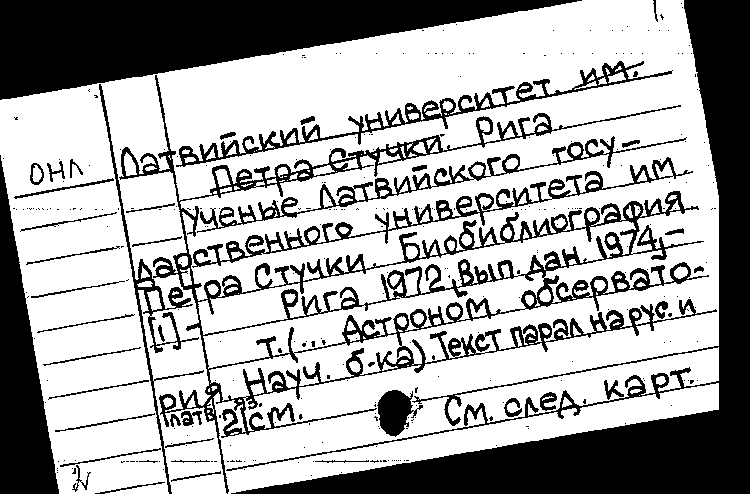 1.
Латвийский университет. им.
ОНЛ
Петра Стучки. Рига.
Ученые Латвийского госу-
дарственного университета им.
Петра Стучки. Биобиблиография.
[1]- Рига, 1972, Вып. дан. 1974,-
т. (... Астроном. обсервато-
рия. Науч. б-ка). Текст парал. на рус. и
латв. яз.
21см. См. след. карт.